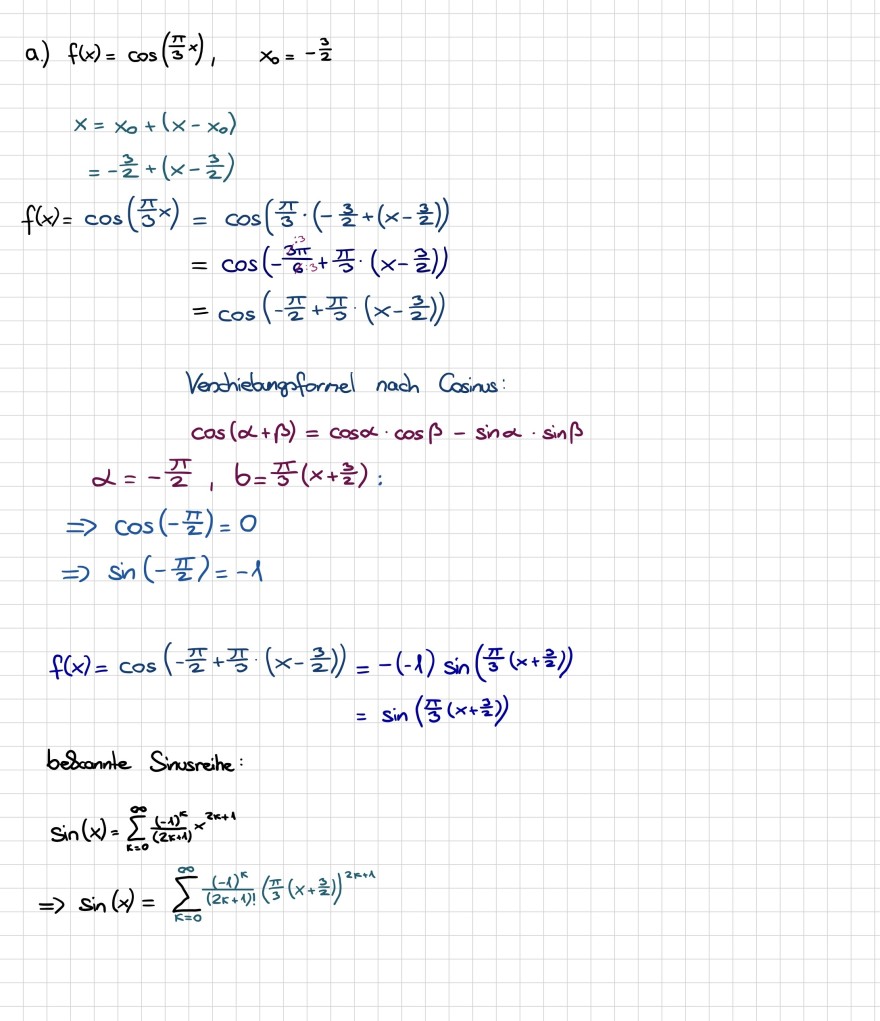 a.) f(x) = cos(π/3 x), x₀ = -3/2
x = x₀ + (x - x₀)
= -3/2 + (x - 3/2)
f(x) = cos(π/3 x) = cos(π/3 · (-3/2 + (x - 3/2))
= cos(-3π/6 :3 :3 + π/3 · (x - 3/2))
= cos(-π/2 + π/3 · (x - 3/2))
Verschiebungsformel nach Cosinus:
cos(α+β) = cosα · cosβ - sinα · sinβ
α = -π/2, b = π/3 (x + 3/2) :
=> cos(-π/2) = 0
=> sin(-π/2) = -1
f(x) = cos(-π/2 + π/3 · (x - 3/2)) = -(-1) sin(π/3 (x + 3/2))
= sin(π/3 (x + 3/2))
bekannte Sinusreihe:
sin(x) = ∑_{k=0}^{∞} (-1)^k/(2k+1) x^{2k+1}
=> sin(x) = ∑_{k=0}^{∞} (-1)^k/(2k+1)! (π/3 (x + 3/2))^{2k+1}